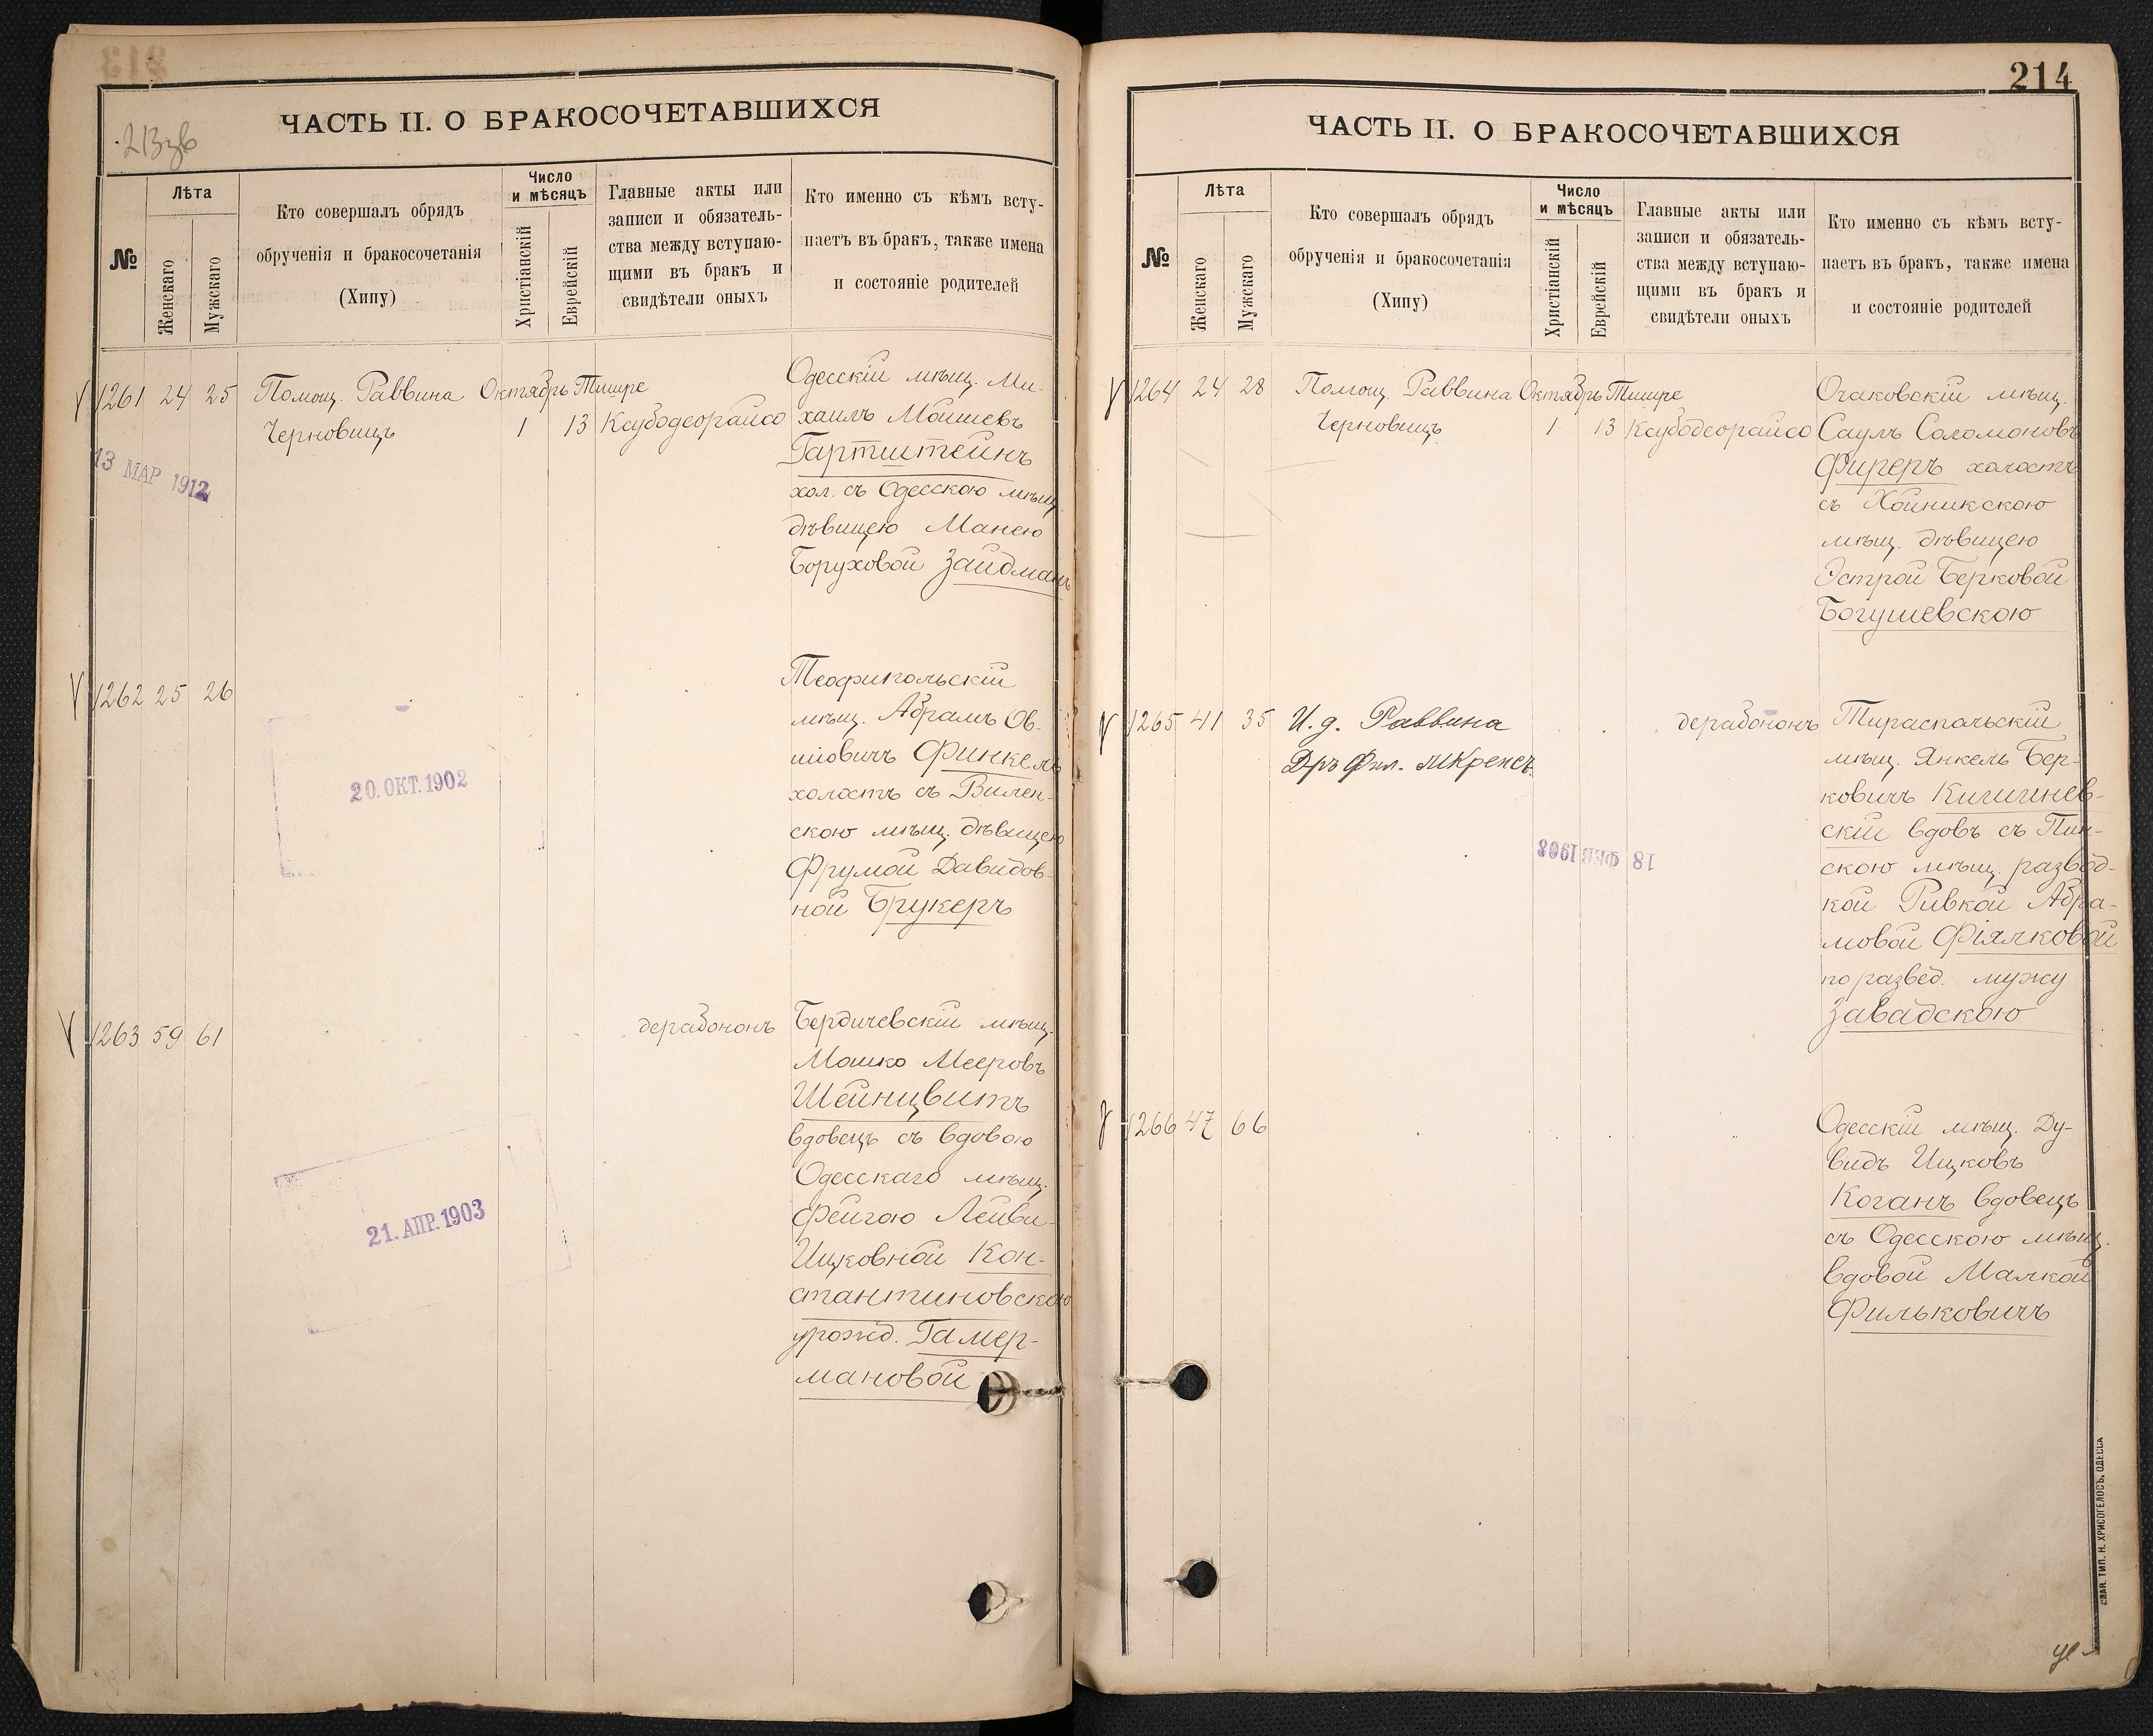 213 зв
ЧАСТЬ II. О БРАКОСОЧЕТАВШИХСЯ
№
Лѣта
Женскаго
Мужскаго
Кто совершалъ обрядъ
обрученія и бракосочетанія
(Хипу)
Число
и мѣсяцъ
Христіанскій
Еврейскій
Главные акты или
записи и обязатель-
ства между вступаю-
щими въ бракъ и
свидѣтели оныхъ
Кто именно съ кѣмъ всту-
паетъ въ бракъ, также имена
и состояніе родителей
1261 24 25 Помощ. Раввина Октябрь Тишре
Черновицъ 1 13 Ксубодеорайсо
13 МАР 1912
Одесскій мѣщ. Ми-
хаилъ Мойшевъ
Гартштейнъ
хол. съ Одесскою мѣщ.
дѣвицею Манею
Боруховой Зайдманъ
1262 25 26
20. ОКТ. 1902
Теофипольскій
мѣщ. Абрамъ Ов-
шіовичъ Финкель
холостъ съ Вилен-
скою мѣщ. дѣвицею
Фрумой Давидов-
ной Брукеръ
1263 59 61 дерабононъ
21. АПР. 1903
Бердичевскій мѣщ.
Мошко Мееровъ
Шейнцвитъ
вдовецъ съ вдовою
Одесскаго мѣщ.
Фейгою Лейви-
Ицковной Кон-
стантиновскою
урожд. Гамер-
мановой
214
ЧАСТЬ II. О БРАКОСОЧЕТАВШИХСЯ
№
Лѣта
Женскаго
Мужскаго
Кто совершалъ обрядъ
обрученія и бракосочетанія
(Хипу)
Число
и мѣсяцъ
Христіанскій
Еврейскій
Главные акты или
записи и обязатель-
ства между вступаю-
щими въ бракъ и
свидѣтели оныхъ
Кто именно съ кѣмъ всту-
паетъ въ бракъ, также имена
и состояніе родителей
1264 24 28 Помощ. Раввина Октябрь Тишре
Черновицъ 1 13 Ксубодеорайсо
Очаковскій мѣщ.
Саулъ Соломоновъ
Фиреръ холостъ
съ Хойникскою
мѣщ. дѣвицею
Эстрой Берковой
Богушевскою
1265 41 35 И. д. Раввина дерабононъ
Дръ Фил.
18 ФЕВ 1903
Тираспольскій
мѣщ. Янкель Бер-
ковичъ Кишинев-
скій вдовъ съ Пин-
скою мѣщ. развод-
кой Ривкой Абра-
мовой Фіялковой
по развед. мужу
Завадскою
1266 47 66
Одесскій мѣщ. Ду-
видъ Ицковъ
Коганъ вдовецъ
съ Одесскою мѣщ.
вдовой Малкой
Фильковичъ
СЛАВ. ТИП. Н. ХРИСОГЕЛОСЪ, ОДЕССА